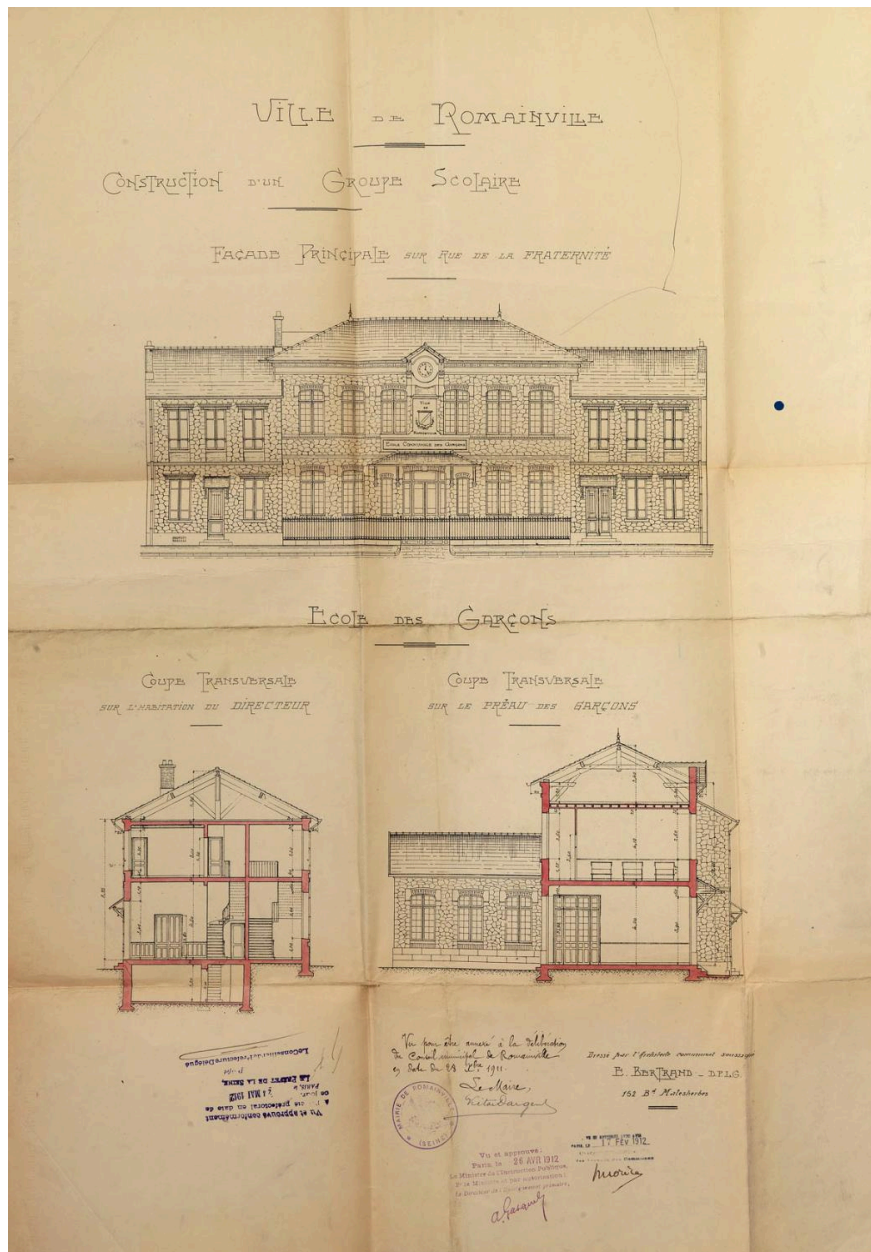 VILLE DE ROMAINVILLE
CONSTRUCTION D'UN GROUPE SCOLAIRE
FAÇADE PRINCIPALE SUR RUE DE LA FRATERNITÉ
VILLE
DE
ÉCOLE COMMUNALE DES GARÇONS
ECOLE DES GARÇONS
COUPE TRANSVERSALE
SUR L'HABITATION DU DIRECTEUR
COUPE TRANSVERSALE
SUR LE PRÉAU DES GARÇONS
Vu et approuvé conformément
à l'arrêté préfectoral en date de
ce jour.
PARIS, le 31 MAI 1912
LE PRÉFET DE LA SEINE,
Le Conseiller de Préfecture Délégué
Vu pour être annexé à la délibération
du Conseil municipal de Romainville
en date du 28 Xbre 1911.
Le Maire,
MAIRIE DE ROMAINVILLE
(SEINE)
Dressé par l'Architecte communal soussigné
E. BERTRAND _ D.P.L.G.
152 Bd Malesherbes
Vu et approuvé:
Paris, le 26 AVR 1912
Le Ministre de l'Instruction Publique,
Pr le Ministre et par autorisation:
Le Directeur de l'Enseignement primaire,
PARIS, LE 17 FEV 1912